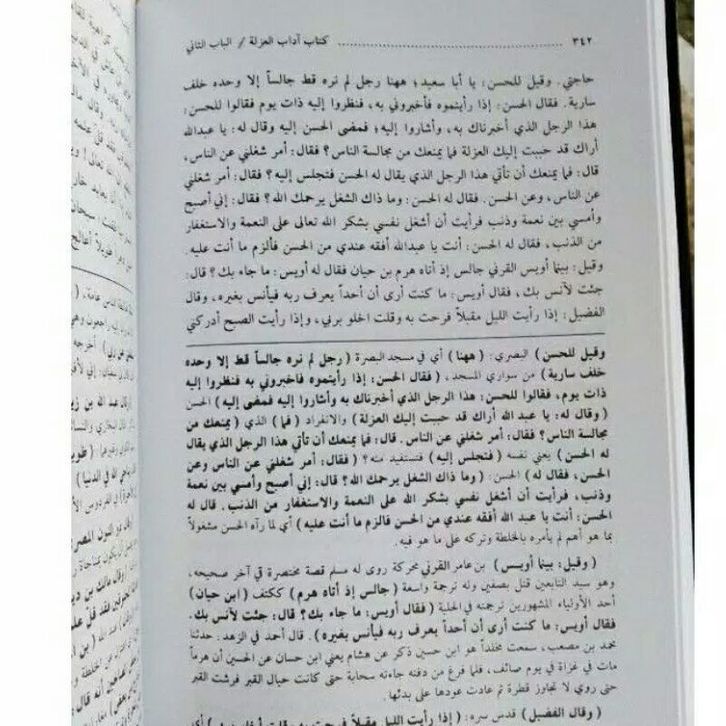 ٣٤٢ ........ كتاب آداب العزلة // الباب الثاني
حاجتي. وقيل للحسن: يا أبا سعيد؛ ههنا رجل لم نره قط جالساً إلا وحده خلف
سارية. فقال الحسن: إذا رأيتموه فأخبروني به، فنظروا إليه ذات يوم فقالوا للحسن:
هذا الرجل الذي أخبرناك به، وأشاروا إليه؛ فمضى الحسن إليه وقال له: يا عبدالله
أراك قد حببت إليك العزلة فما يمنعك من مجالسة الناس؟ فقال: أمر شغلني عن الناس،
قال: فما يمنعك أن تأتي هذا الرجل الذي يقال له الحسن فتجلس إليه؟ فقال: أمر شغلني
عن الناس، وعن الحسن. فقال له الحسن: وما ذاك الشغل يرحمك الله؟ فقال: إني أصبح
وأمسي بين نعمة وذنب فرأيت أن أشغل نفسي بشكر الله تعالى على النعمة والاستغفار
من الذنب، فقال له الحسن: أنت يا عبدالله أفقه عندي من الحسن فألزم ما أنت عليه.
وقيل: بينما أويس القرني جالس إذ أتاه هرم بن حيان فقال له أويس: ما جاء بك؟ قال:
جئت لآنس بك، فقال أويس: ما كنت أرى أن أحداً يعرف ربه فيأنس بغيره، وقال
الفضيل: إذا رأيت الليل مقبلاً فرحت به وقلت اخلو بربي، وإذا رأيت الصبح أدركني
وقيل للحسن ) البصري: ( ههنا ) أي في مسجد البصرة ( رجل لم نره جالساً قط إلا وحده
خلف سارية ) من سواري المسجد، ( فقال الحسن: إذا رأيتموه فاخبروني به فنظروا إليه
ذات يوم، فقالوا للحسن: هذا الرجل الذي أخبرناك به وأشاروا إليه فمضى إليه ) الحسن
( وقال له: يا عبد الله أراك قد حببت إليك العزلة ) والانفراد ( فما ) الذي ( يمنعك من
مجالسة الناس؟ فقال: أمر شغلني عن الناس. قال: فما يمنعك أن تأتي هذا الرجل الذي يقال
له الحسن ) يعني نفسه ( فتجلس إليه ) فتستفيد منه؟ ( فقال: أمر شغلني عن الناس وعن
الحسن، فقال له ) الحسن: ( وما ذاك الشغل يرحمك الله؟ قال: إني أصبح وأمسي بين نعمة
وذنب، فرأيت أن أشغل نفسي بشكر الله على النعمة والاستغفار من الذنب. قال له
الحسن: أنت يا عبد الله أفقه عندي من الحسن فالزم ما أنت عليه ) أي لما رآه الحسن مشغولاً
بما هو أهم لم يأمره بالخلطة وتركه على ما هو فيه.
( وقيل: بينما أويس ) بن عامر القرني محركة روى له مسلم قصة مختصرة في آخر صحيحه،
وهو سيد التابعين قتل بصفين وله ترجمة واسعة ( جالس إذ أتاه هرم ) ككتف ( ابن حيان )
أحد الأولياء المشهورين ترجمته في الحلية ( فقال أويس: ما جاء بك؟ قال: جئت لآنس بك.
فقال أويس: ما كنت أرى أن أحداً يعرف ربه فيأنس بغيره ). قال أحمد في الزهد: حدثنا
محمد بن مصعب، سمعت مخلداً هو ابن حسين ذكر عن هشام يعني ابن حسان عن الحسين أن هرماً
مات في غزاة في يوم صائف، فلما فرغ من دفنه جاءته سحابة حتى كانت حيال القبر فرشت القبر
حتى روي لا تجاوز قطرة ثم عادت عودها على بدئها.
( وقال الفضيل ) قدس سره: ( إذا رأيت الليل مقبلاً فرحت به وقلت أخلو بربي ) أي